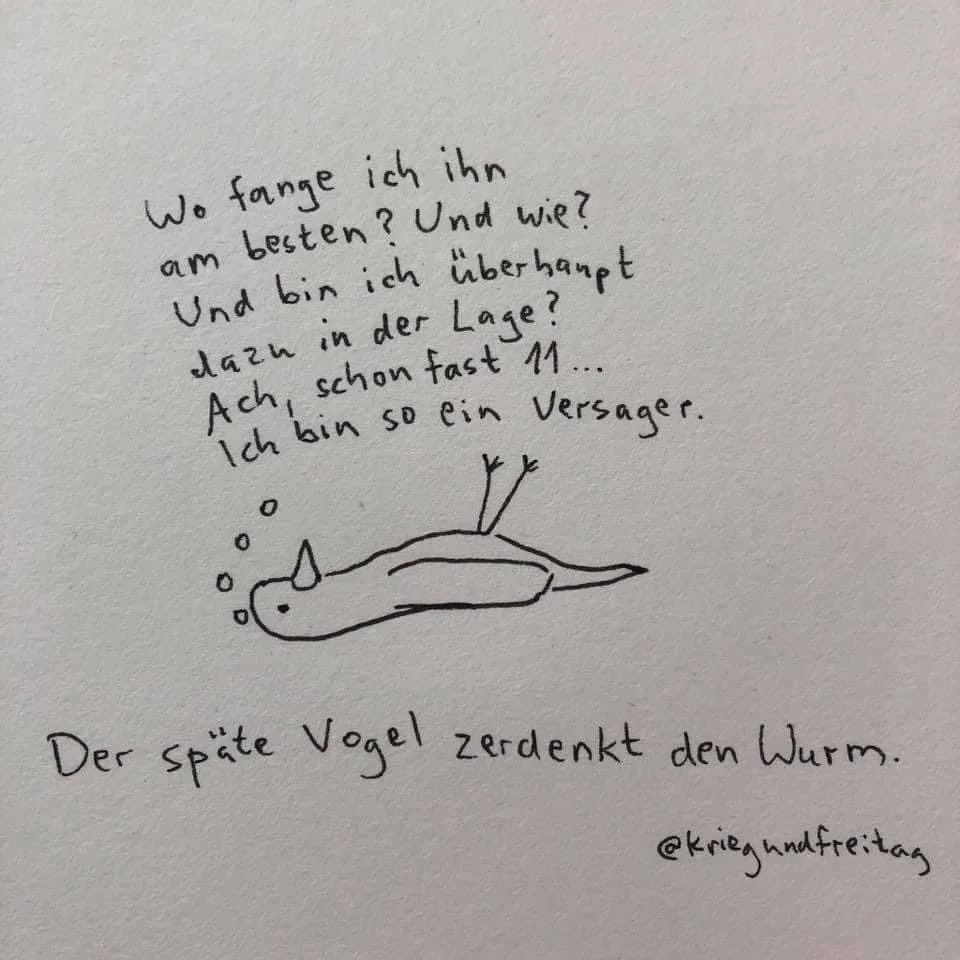 Wo fange ich ihn
am besten? Und wie?
Und bin ich überhaupt
dazu in der Lage?
Ach, schon fast 11...
Ich bin so ein Versager.
Der späte Vogel zerdenkt den Wurm.
@kriegundfreitag